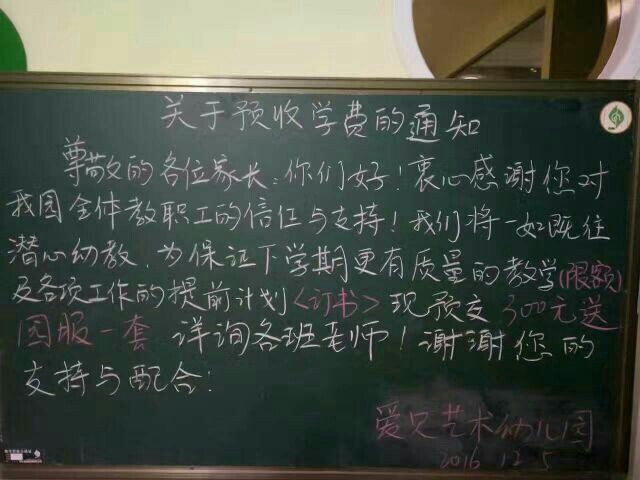 关于预收学费的通知
尊敬的各位家长:你们好!衷心感谢您对
我园全体教职工的信任与支持!我们将一如既往
潜心幼教,为保证下学期更有质量的教学(限额)
及各项工作的提前计划<订书>现预交300元送
园服一套 详询各班老师!谢谢您的
支持与配合!
爱贝艺术幼儿园
2016 12 5